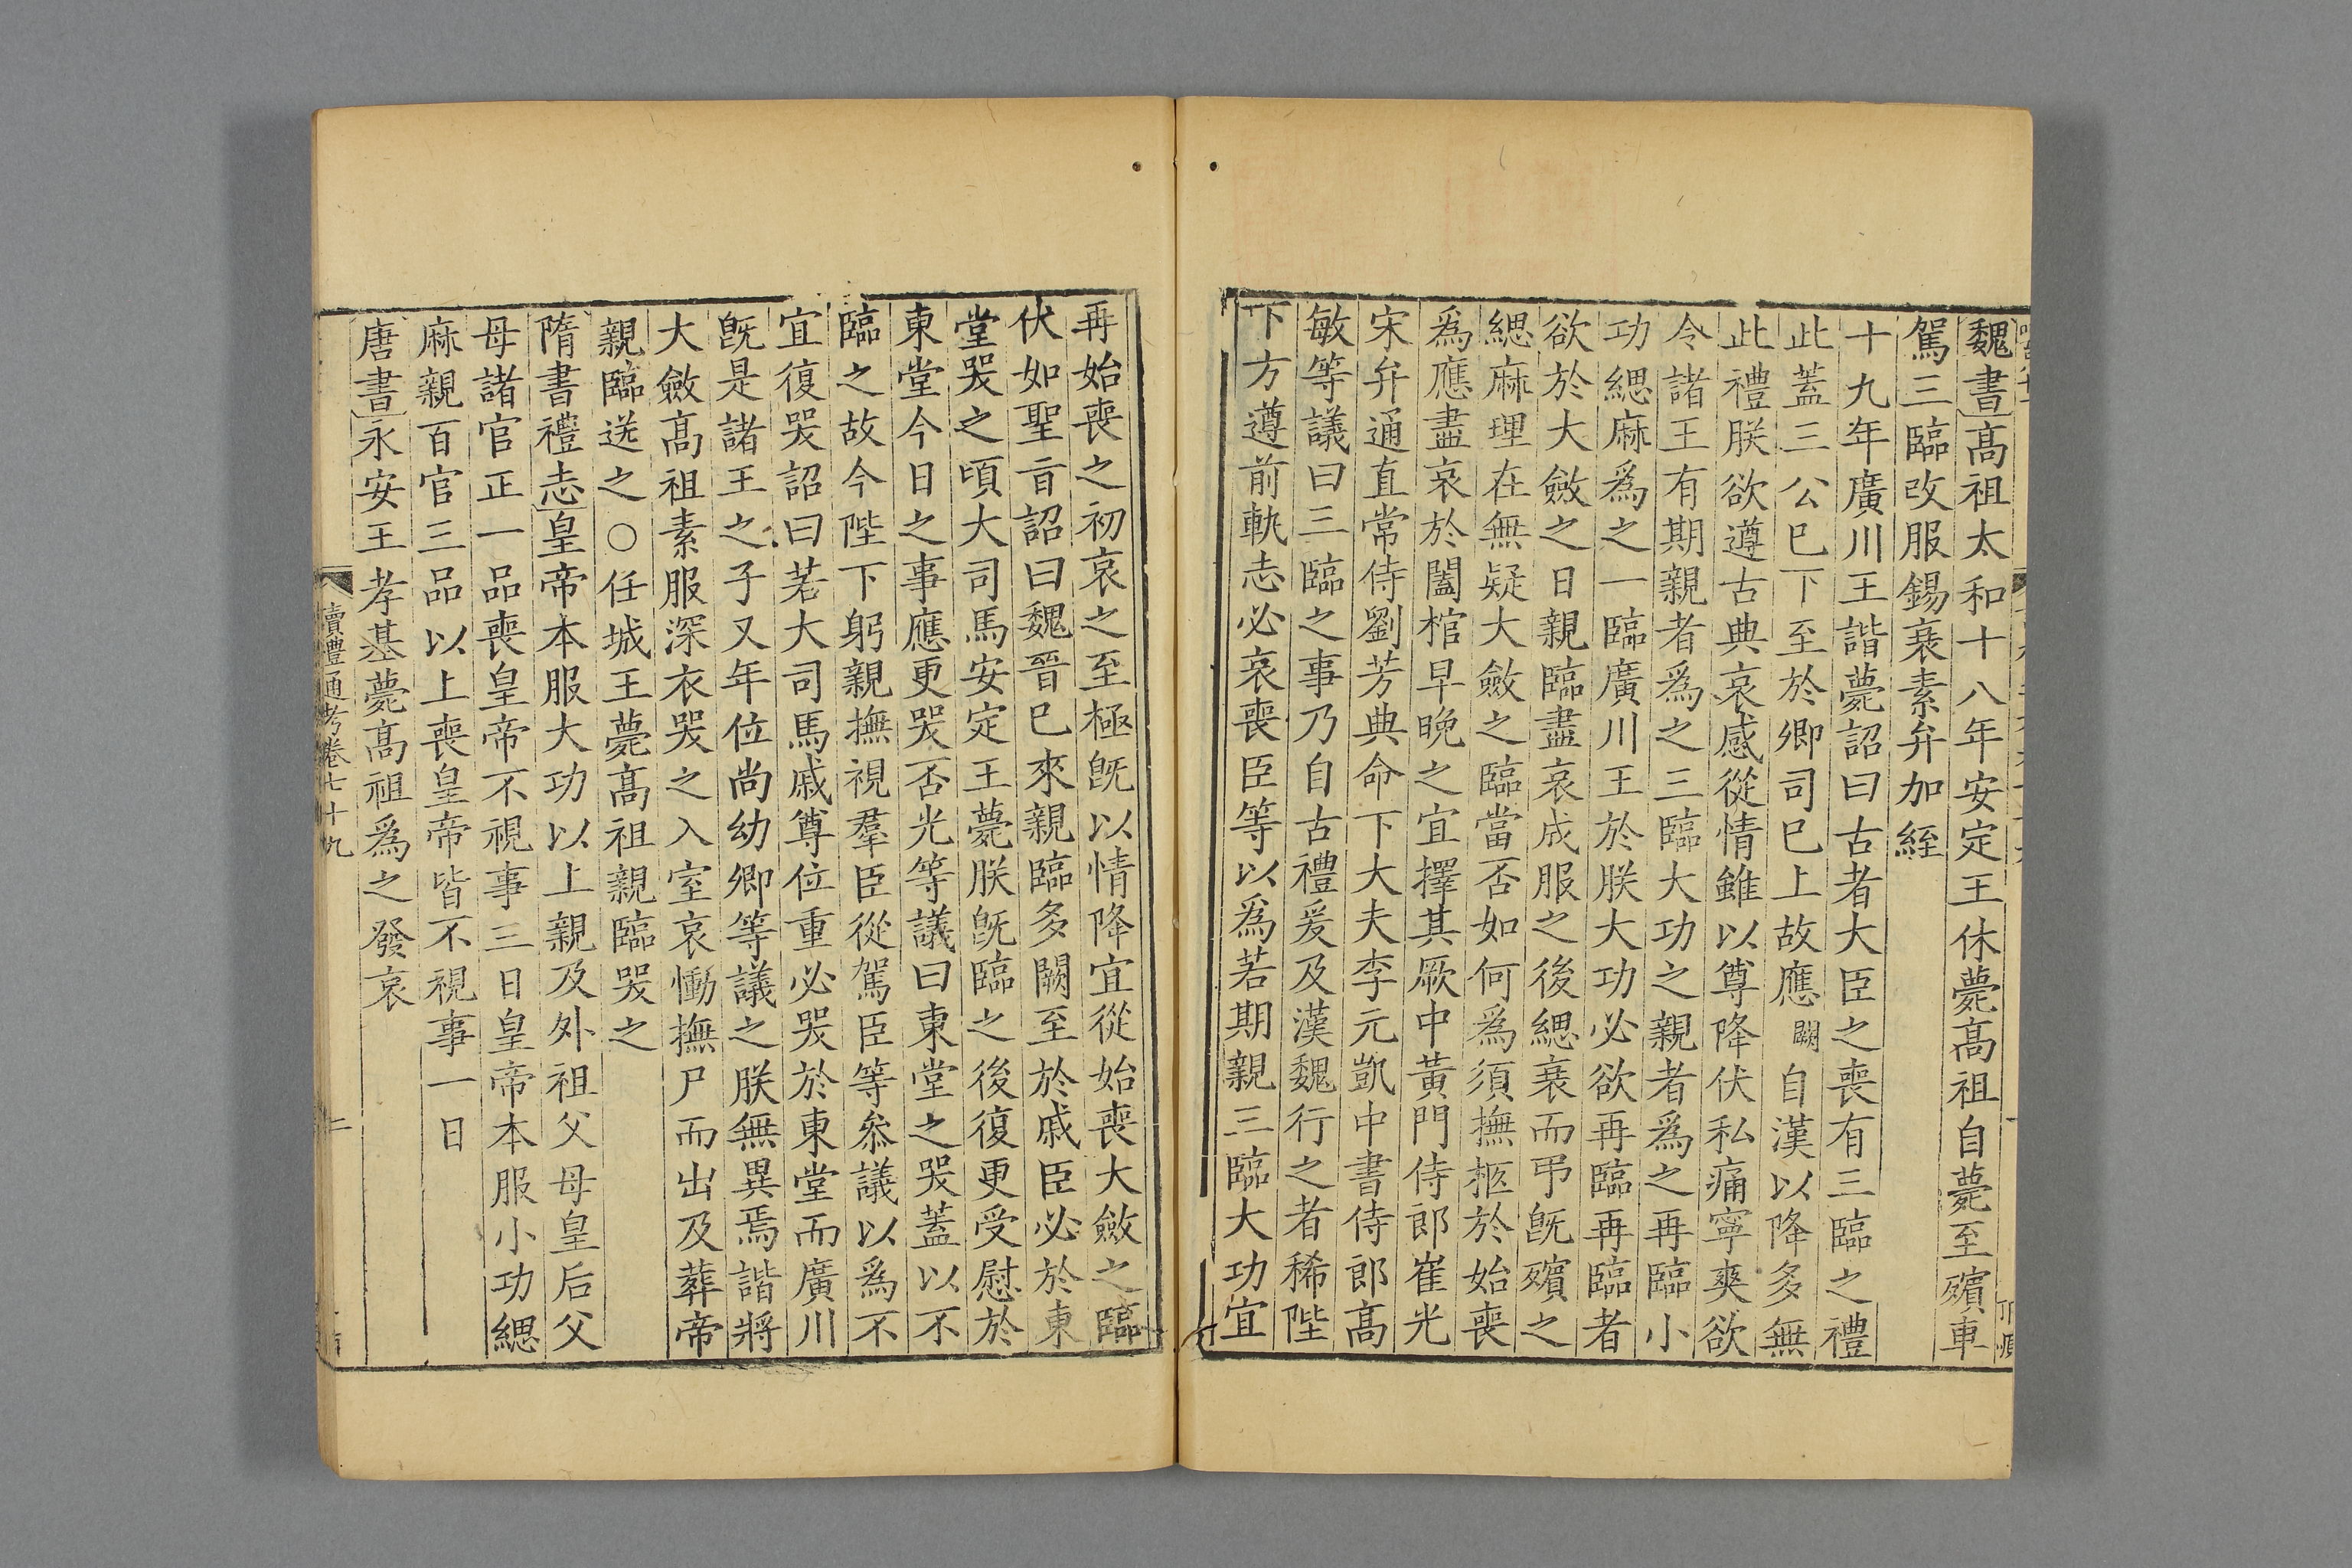 魏書高祖太和十八年安定王休薨高祖自薨至殯車
駕三臨改服錫衰素弁加絰
十九年廣川王諧薨詔曰古者大臣之喪有三臨之禮
此蓋三公已下至於卿司已上故應闕自漢以降多無
此禮朕欲遵古典哀感從情雖以尊降伏私痛寧爽欲
令諸王有期親者爲之三臨大功之親者爲之再臨小
功緦麻爲之一臨廣川王於朕大功必欲再臨再臨者
欲於大斂之日親臨盡哀成服之後緦衰而弔旣殯之
緦麻理在無疑大斂之臨當否如何爲須撫柩於始喪
爲應盡哀於闔棺早晚之宜擇其厥中黃門侍郎崔光
宋弁通直常侍劉芳典命下大夫李元凱中書侍郎高
敏等議曰三臨之事乃自古禮爰及漢魏行之者稀陛
下方遵前軌志必哀喪臣等以爲若期親三臨大功宜
再始喪之初哀之至極旣以情降宜從始喪大斂之臨
伏如聖旨詔曰魏晉已來親臨多闕至於戚臣必於東
堂哭之頃大司馬安定王薨朕旣臨之後復更受慰於
東堂今日之事應更哭否光等議曰東堂之哭蓋以不
臨之故今陛下躬親撫視羣臣從駕臣等叅議以爲不
宜復哭詔曰若大司馬戚尊位重必哭於東堂而廣川
旣是諸王之子又年位尚幼卿等議之朕無異焉諧將
大斂高祖素服深衣哭之入室哀慟撫尸而出及葬帝
親臨送之○任城王薨高祖親臨哭之
隋書禮志皇帝本服大功以上親及外祖父母皇后父
母諸官正一品喪皇帝不視事三日皇帝本服小功緦
麻親百官三品以上喪皇帝皆不視事一日
唐書永安王孝基薨高祖爲之發哀
讀禮通考卷七十九
二